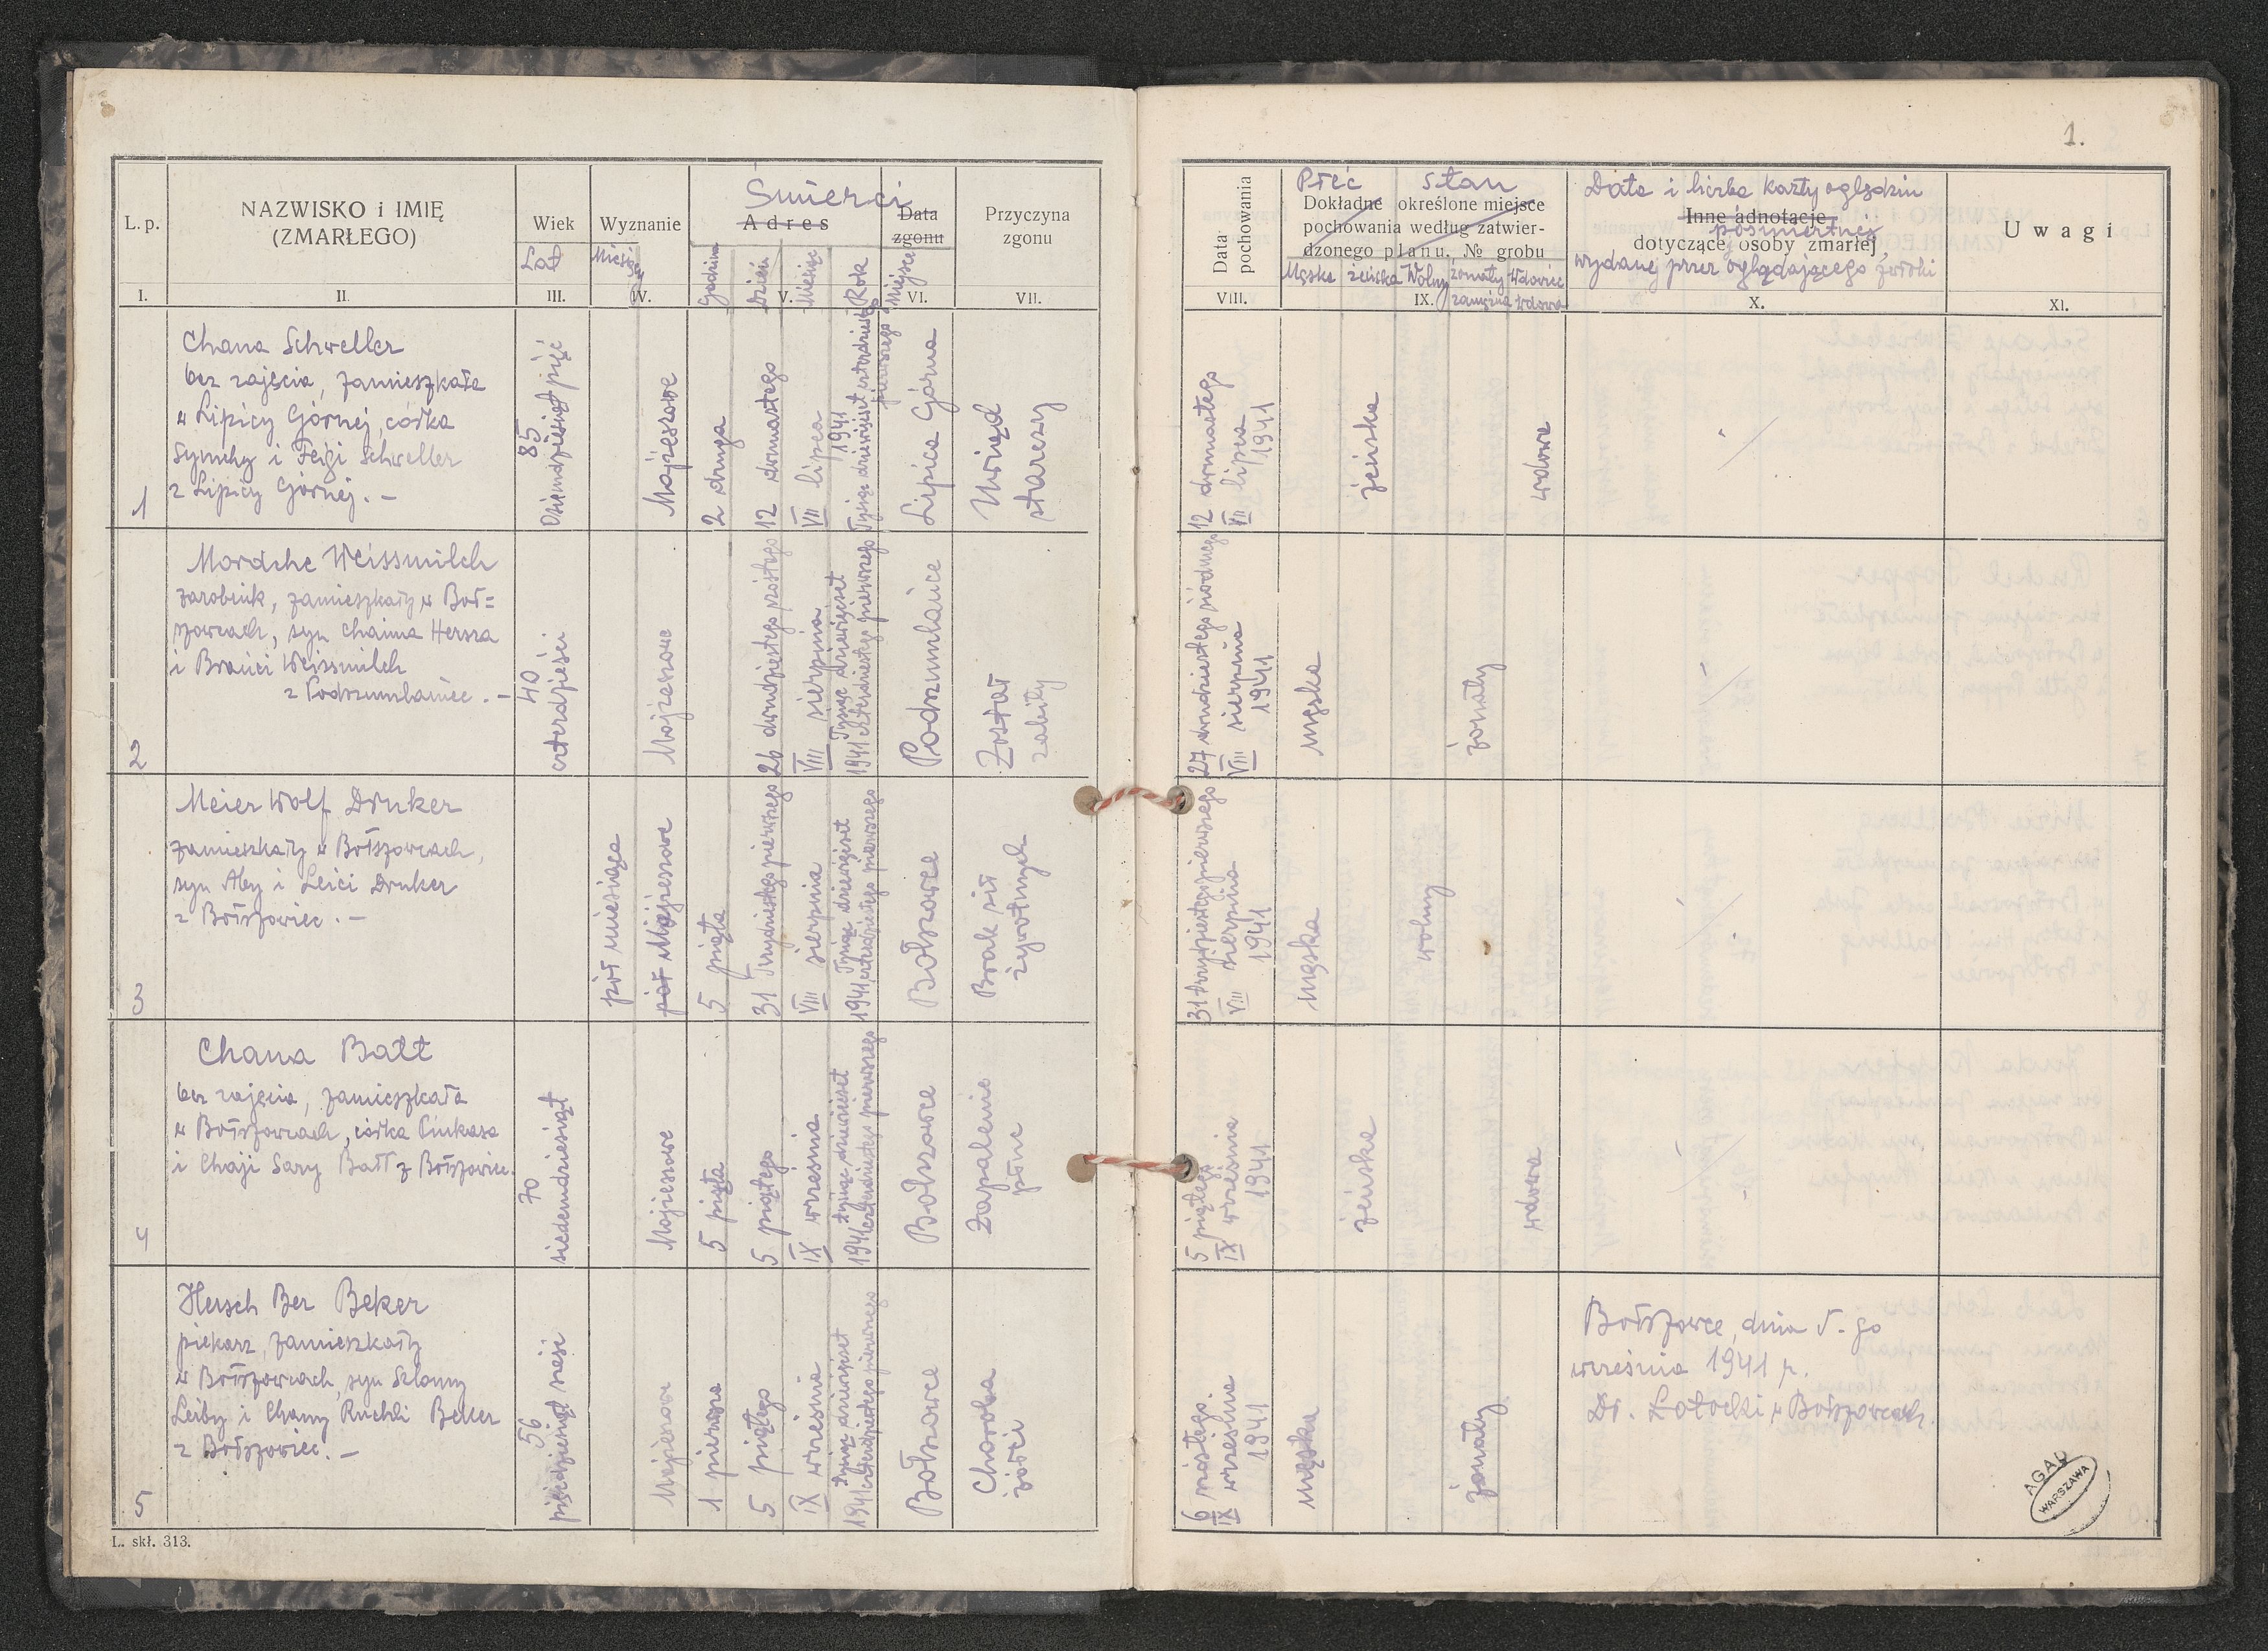 1.
L. p.
NAZWISKO i IMIĘ
(ZMARŁEGO)
Wiek
Wyznanie
Śmierci
Adres
Data
zgonu
Przyczyna
zgonu
Lat
Miesięcy
Godzina
Dzień
Miesiąc
Rok
Miejsce
I.
II.
III.
IV.
V.
VI.
VII.
Data
pochowania
Płeć stan
Dokładne określone miejsce
pochowania według zatwier-
dzonego planu, № grobu
Męska żeńska Wolny żonaty Wdowiec
zamężna wdowa
Data i liczba karty oględzin
Inne adnotacje
pośmiertnej
dotyczące osoby zmarłej
wydanej przez oglądającego zwłoki
Uwagi
VIII.
IX.
X.
XI.
1
Chana Schweller
bez zajęcia, zamieszkała
w Lipicy Górnej, córka
Symchy i Feigi Schweller
z Lipicy Górnej. —
85
Ośmdziesiąt pięć
Mojżeszowe
2 druga
12 dwunastego
VII lipca
1941
Tysiąc dziewięćset czterdziestego
pierwszego
Lipica Górna
Uwiąd
starczy
12 dwunastego
VII lipca
1941
żeńska
wdowa
2
Mordche Weissmilch
zarobnik, zamieszkały w Boł=
szowcach, syn Chaima Hersza
i Brańci Weissmilch
z Podszumlaniec. —
40
czterdzieści
Mojżeszowe
26 dwudziestego szóstego
VIII sierpnia
Tysiąc dziewięćset
1941 czterdziestego pierwszego
Podszumlańce
Został
zabity
27 dwudziestego siódmego
VIII sierpnia
1941
męska
żonaty
3
Meier Wolf Druker
zamieszkały w Bołszowcach,
syn Aby i Leici Druker
z Bołszowiec. —
pół miesiąca
pół Mojżeszowe
5 piąta
31 Trzydziestego pierwszego
VIII sierpnia
Tysiąc dziewięćset
1941 czterdziestego pierwszego
Bołszowce
Brak sił
żywotnych
31 trzydziestego pierwszego
VIII sierpnia
1941
męska
wolny
4
Chana Batt
bez zajęcia, zamieszkała
w Bołszowcach, córka Pinkasa
i Chaji Sary Batt z Bołszowiec.
70
siedemdziesiąt
Mojżeszowe
5 piąta
5 piątego
IX września
tysiąc dziewięćset
1941 czterdziestego pierwszego
Bołszowce
Zapalenie
płuc
5 piątego
IX września
1941
żeńska
wdowa
5
Hersch Ber Beker
piekarz, zamieszkały
w Bołszowcach, syn Szlomy
Leiby i Chany Ruchli Beker
z Bołszowiec. —
56
pięćdziesiąt sześć
Mojżeszowe
1 pierwsza
5 piątego
IX września
tysiąc dziewięćset
1941 czterdziestego pierwszego
Bołszowce
Choroba
żółci
6 szóstego
IX września
1941
męska
żonaty
Bołszowce, dnia 5. go
września 1941 r.
Dr. w Bołszowcach
AGAD
WARSZAWA
L. skł. 313.